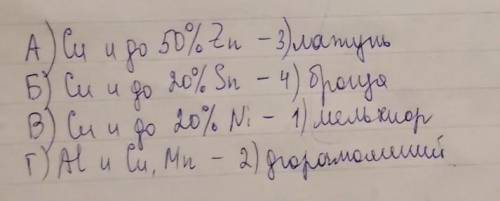 А) Cu и до 50% Zn - 3) латунь
Б) Cu и до 20% Sn - 4) бронза
В) Cu и до 20% Ni - 1) мельхиор
Г) Al и Cu, Mn - 2) дюралюминий